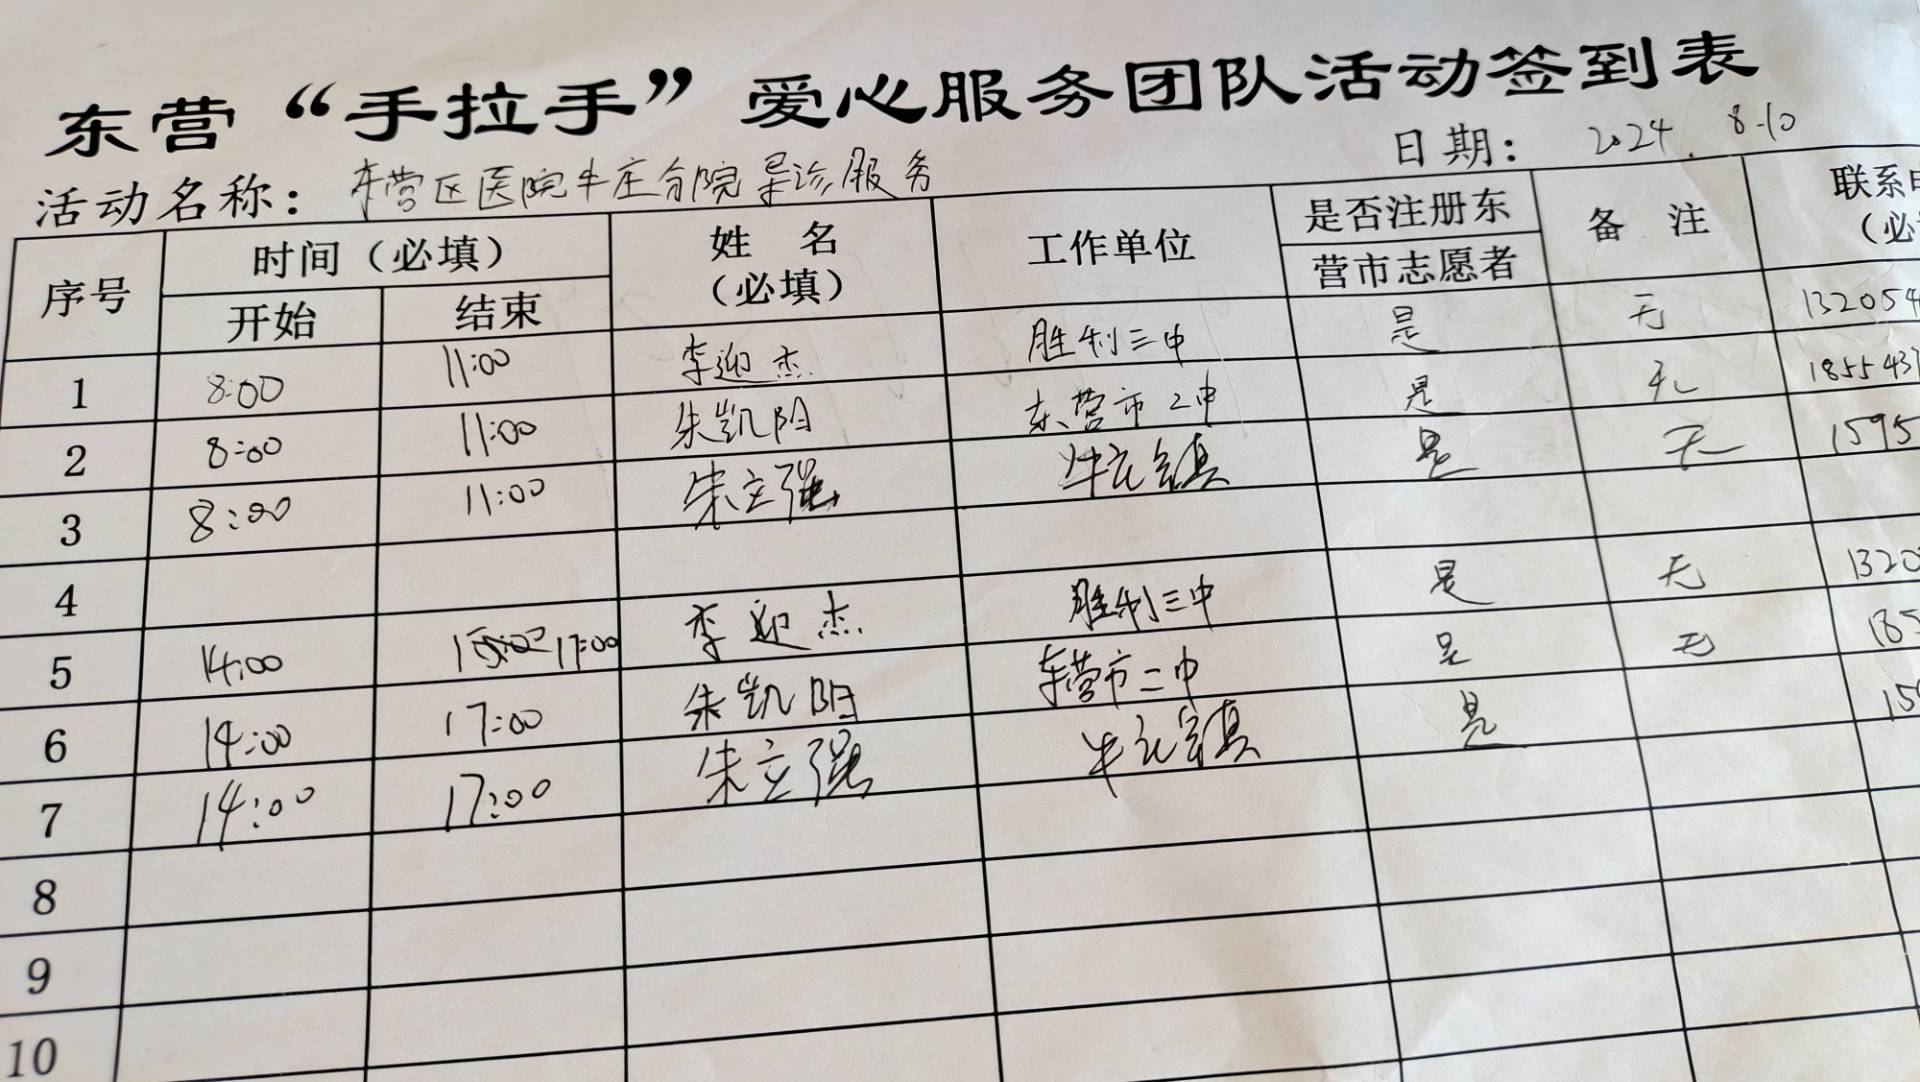 东营“手拉手”爱心服务团队活动签到表
活动名称：东营区医院牛庄分院导诊服务 日期：2024.8.10
序号 时间（必填） 姓名（必填） 工作单位 是否注册东营市志愿者 备注 联系
开始 结束
1 8:00 11:00 李迎杰 胜利三中 是 无 132054
2 8:00 11:00 朱凯阳 东营市二中 是 无 185543
3 8:00 11:00 朱立强 牛庄镇 是 无 1595
4
5 14:00 17:00 李迎杰 胜利三中 是 无 1320
6 14:00 17:00 朱凯阳 东营市二中 是 无 185
7 14:00 17:00 朱立强 牛庄镇 是 15
8
9
10